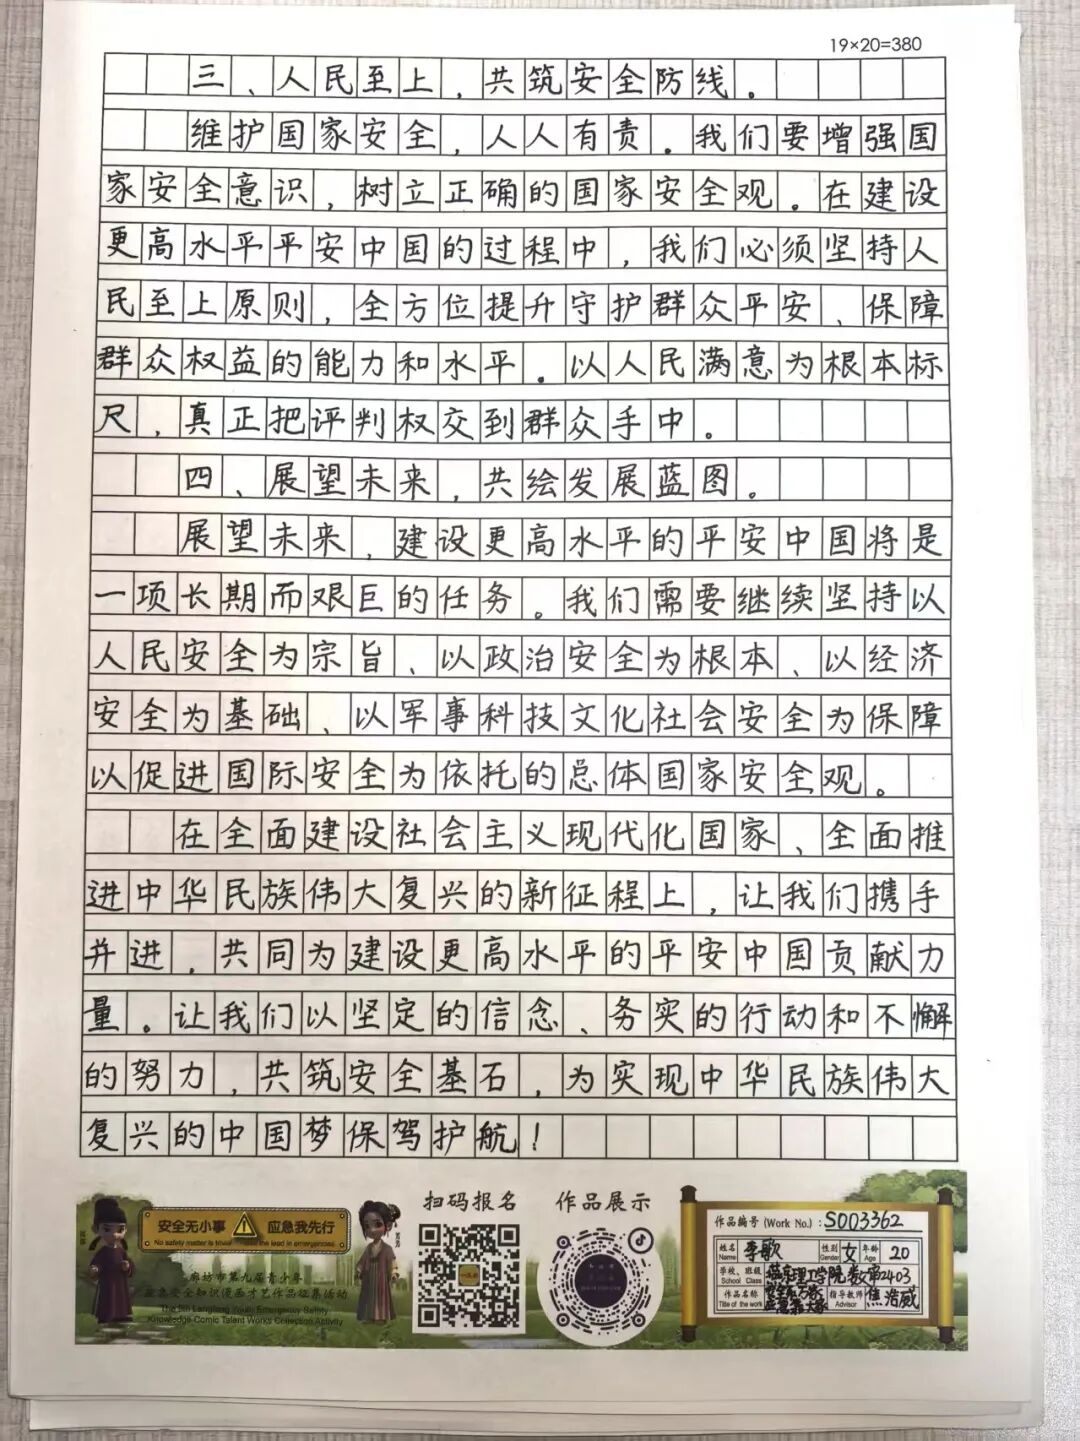 19×20=380
三、人民至上，共筑安全防线。
维护国家安全，人人有责。我们要增强国
家安全意识，树立正确的国家安全观。在建设
更高水平平安中国的过程中，我们必须坚持人
民至上原则，全方位提升守护群众平安、保障
群众权益的能力和水平。以人民满意为根本标
尺，真正把评判权交到群众手中。
四、展望未来，共绘发展蓝图。
展望未来，建设更高水平的平安中国将是
一项长期而艰巨的任务。我们需要继续坚持以
人民安全为宗旨、以政治安全为根本、以经济
安全为基础、以军事科技文化社会安全为保障
以促进国际安全为依托的总体国家安全观。
在全面建设社会主义现代化国家、全面推
进中华民族伟大复兴的新征程上，让我们携手
并进，共同为建设更高水平的平安中国贡献力
量。让我们以坚定的信念、务实的行动和不懈
的努力，共筑安全基石，为实现中华民族伟大
复兴的中国梦保驾护航！
扫码报名 作品展示
安全无小事 应急我先行
No safety matter is trivial take the lead in emergencies
廊坊市第九届青少年
应急安全知识漫画才艺作品征集活动
The 9th Langfang Youth Emergency Safety
Knowledge Comic Talent Works Collection Activity
作品编号 (Work No.)：S003362
姓名 Name 李歌 性别 Gender 女 年龄 Age 20
学校、班级 School Class 燕京理工学院 数审2403
作品名称 Title of the work 指导教师 Advisor 焦浩威